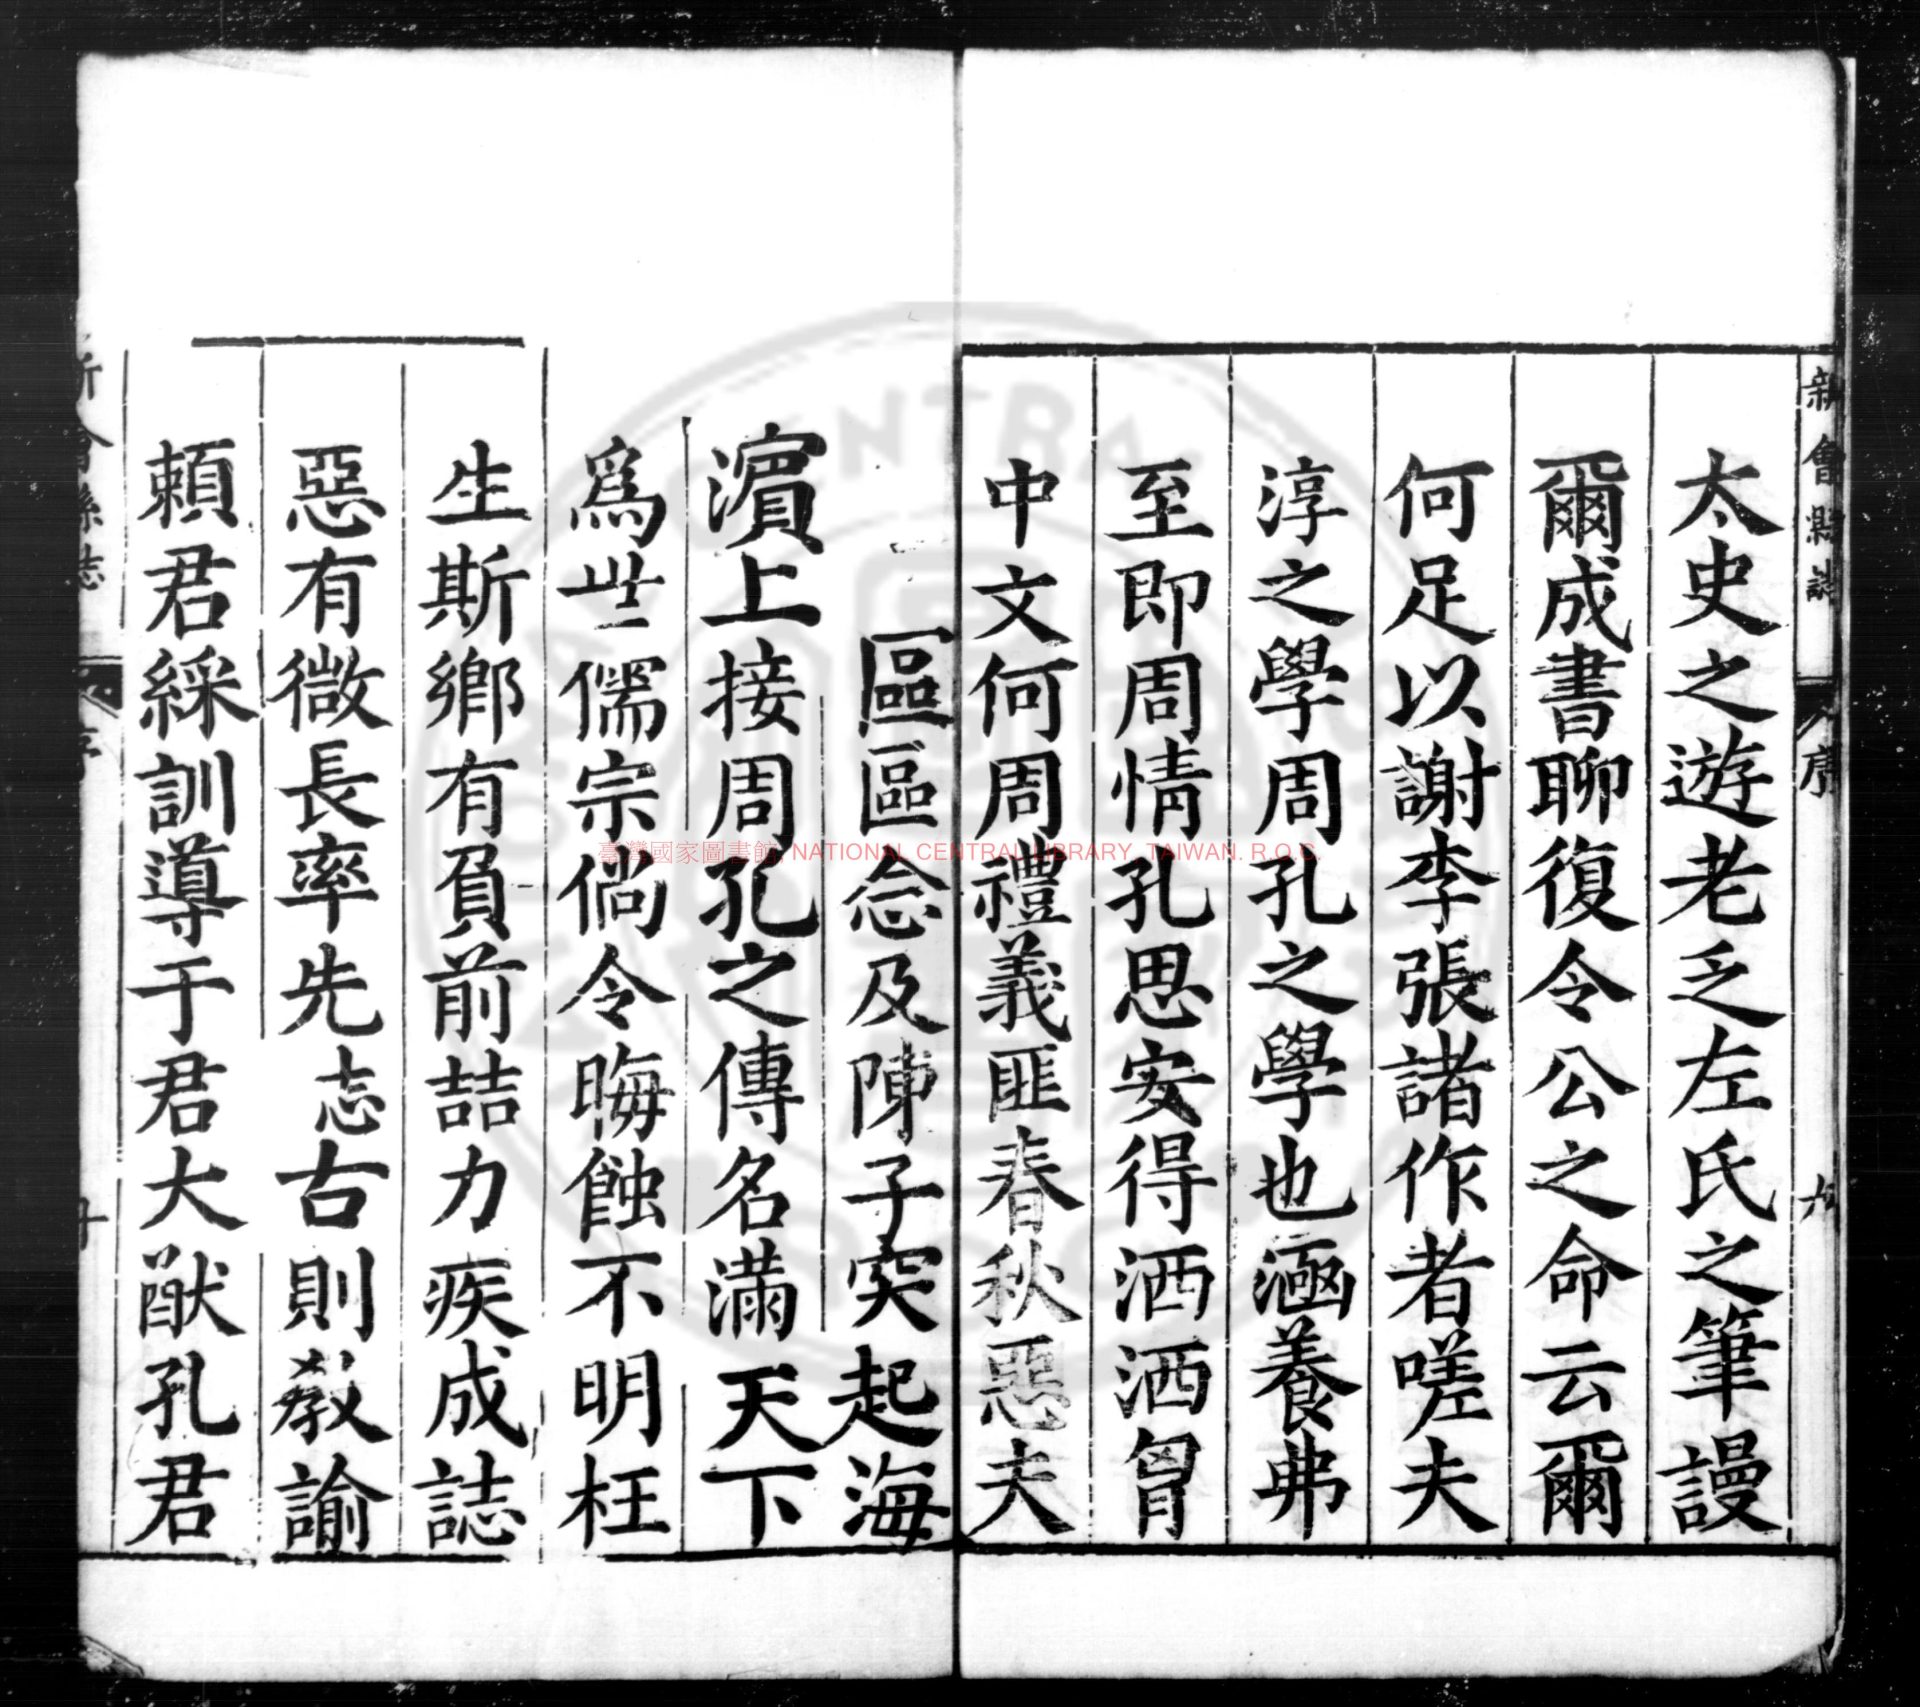 新會縣誌 序 九
太史之遊老乏左氏之筆謾
爾成書聊復令公之命云爾
何足以謝李張諸作者嗟夫
淳之學周孔之學也涵養弗
至即周情孔思安得洒洒胷
中文何周禮義匪春秋惡夫
區區念及陳子突起海
濵上接周孔之傳名滿天下
爲世儒宗倘令晦蝕不明枉
生斯鄉有負前喆力疾成誌
惡有微長率先志古則教諭
頼君綵訓導于君大猷孔君
新會縣誌 序 十
臺灣國家圖書館, NATIONAL CENTRAL LIBRARY, TAIWAN. R.O.C.